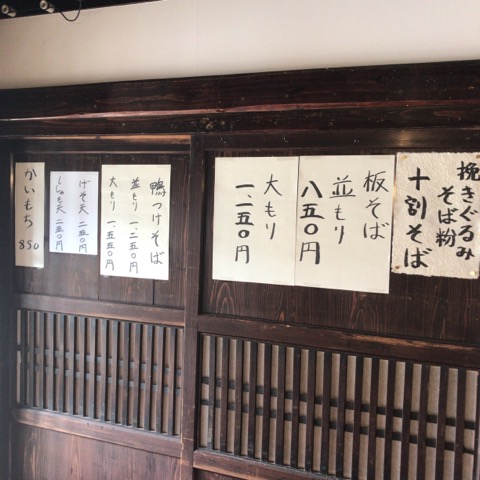 挽きぐるみ
そば粉
十割そば
板そば
並もり
八五〇円
大もり
一、一五〇円
鴨つけそば
並もり 一、二五〇円
大もり 一、五五〇円
げそ天 二五〇円
かいもち
850